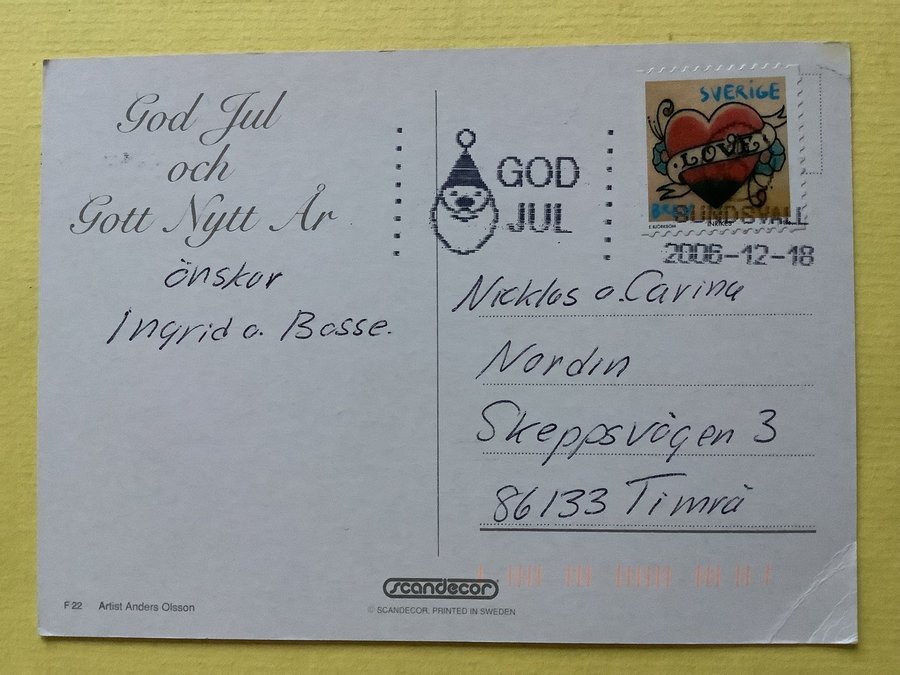 God Jul
och
Gott Nytt År
önskar
Ingrid o. Bosse.
GOD
JUL
SVERIGE
LOVE
BREV
INRIKES
SUNDSVALL
2006-12-18
Nicklas o. Carina
Nordin
Skeppsvägen 3
86133 Timrå
scandecor
© SCANDECOR, PRINTED IN SWEDEN
F 22 Artist Anders Olsson